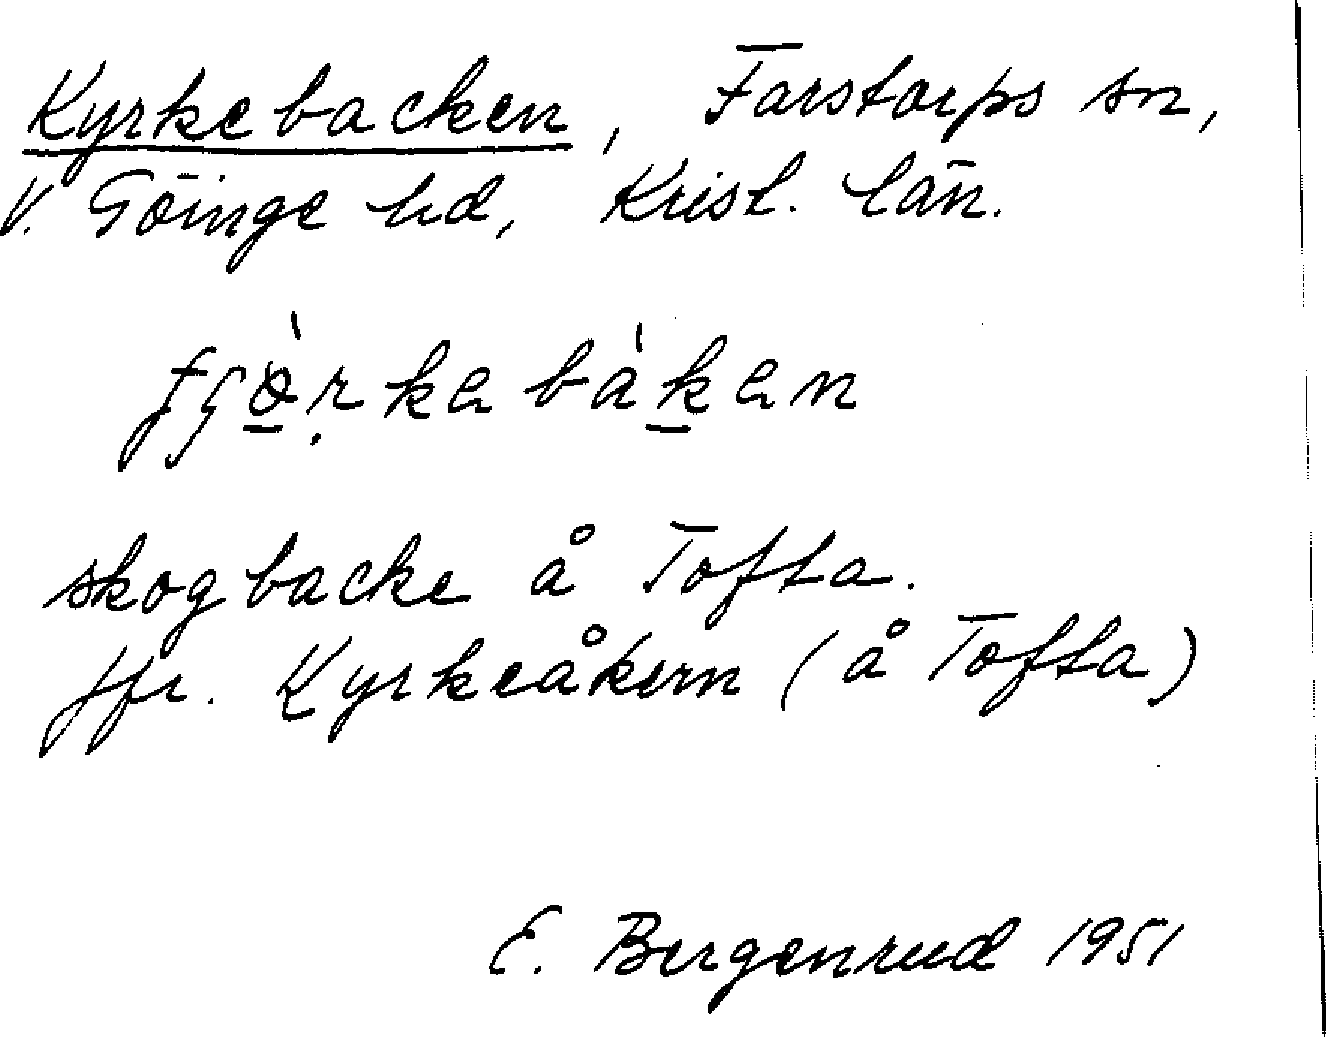 Kyrkebacken, Farstorps sn,
V. Göinge hd, Krist. län.
skogbacke å Tofta.
Jfr. Kyrkeåkern (å Tofta)
E. Bergenrud 1951